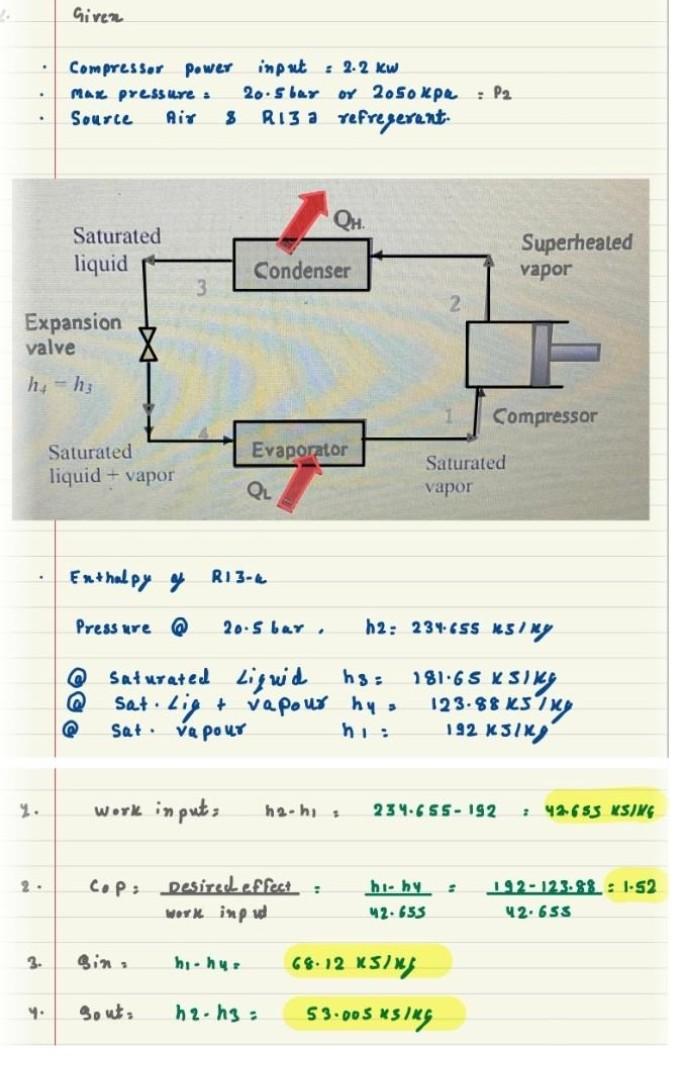 Given
· Compressor power input : 2.2 kw
· Max pressure : 20.5 bar or 2050 kpa : P2
· Source Air & R13a refregerant.
QH.
Saturated liquid
Condenser
Superheated vapor
3
2
Expansion valve
h4 = h3
1
Compressor
4
Saturated liquid + vapor
Evaporator
QL
Saturated vapor
· Enthalpy of R13-a
Pressure @ 20.5 bar . h2: 234.655 KJ/Kg
@ Saturated Liquid h3 = 181.65 KJ/Kg
@ Sat. Liq + vapour h4 = 123.88 KJ/Kg
@ Sat. vapour h1 : 192 KJ/Kg
1. Work input: h2-h1 : 234.655-192 : 42.655 KJ/KG
2. COP: Desired effect : h1-h4 = 192-123.88 : 1.52
work input 42.655 42.655
3. Qin = h1-h4 = 68.12 KJ/Kg
4. Qout: h2-h3 = 53.005 KJ/KG